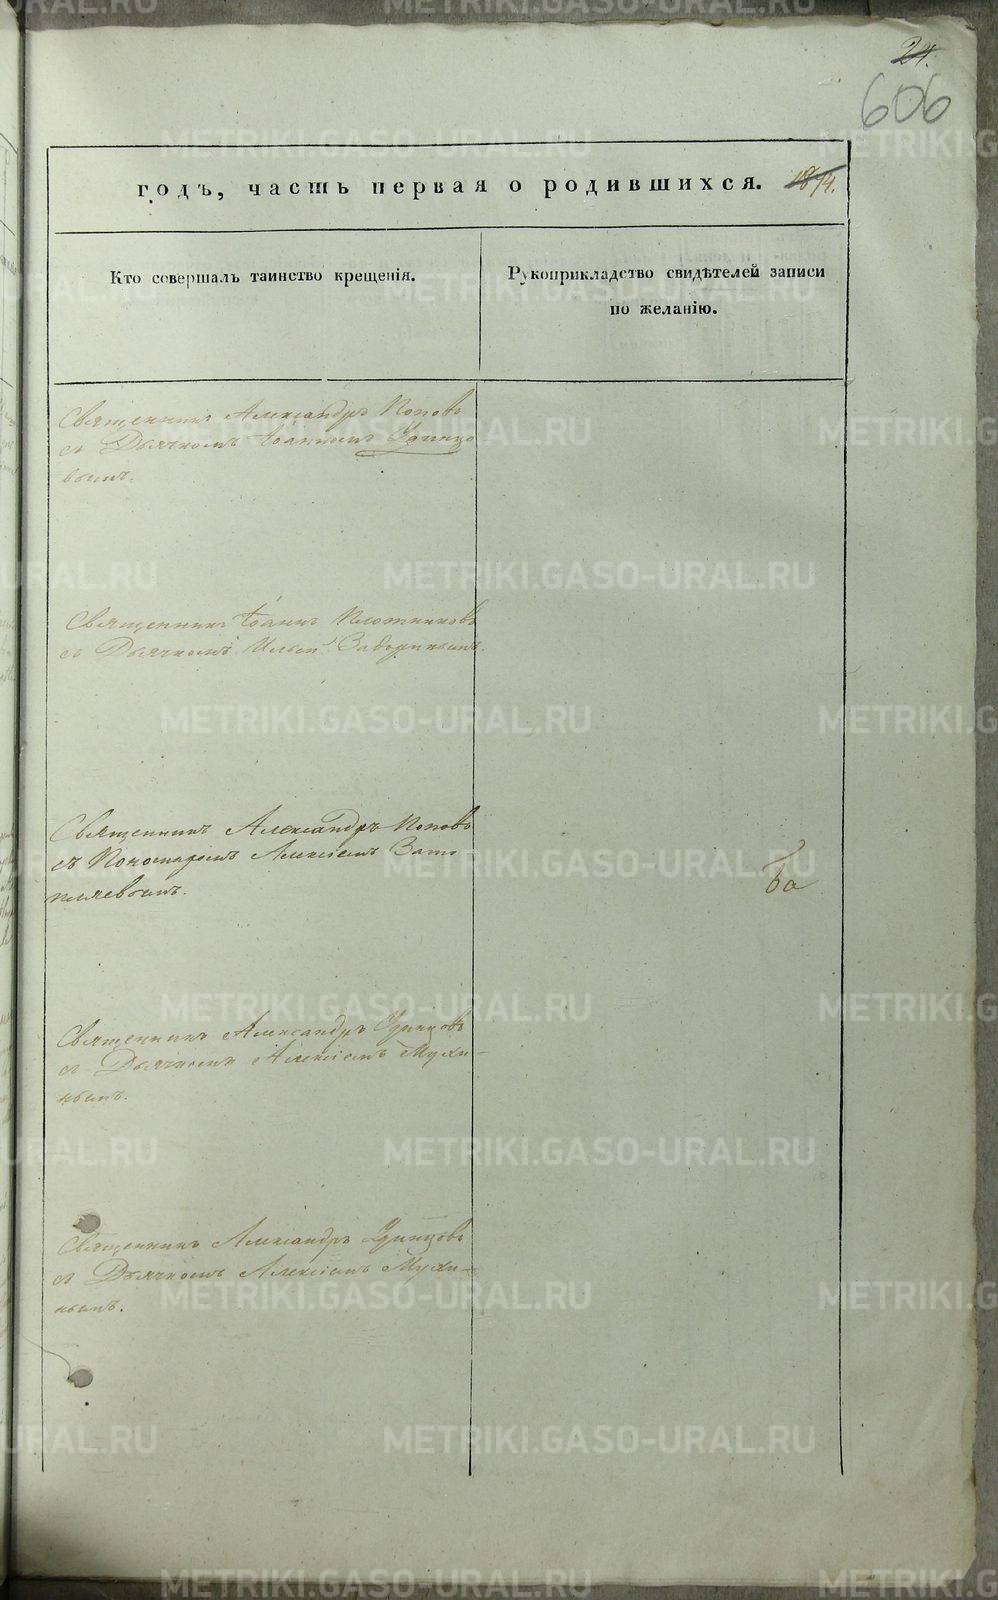 24.
606
годъ, часть первая о родившихся. 1874.
Кто совершалъ таинство крещенія.
Рукоприкладство свидѣтелей записи
по желанію.
Священникъ Александръ Поповъ
съ Дьячкомъ Іоанномъ Удинцо
вымъ.
Священникъ Іоаннъ Плотниковъ
съ Дьячкомъ Ильей
Священникъ Александръ Поповъ
съ Пономаремъ Алексіемъ
Ба
Священникъ Александръ Удинцовъ
съ Дьячкомъ Алексіемъ Мухи–
нымъ.
Священникъ Александръ Удинцовъ
съ Дьячкомъ Алексіемъ Мухи–
нымъ.
METRIKI.GASO-URAL.RU